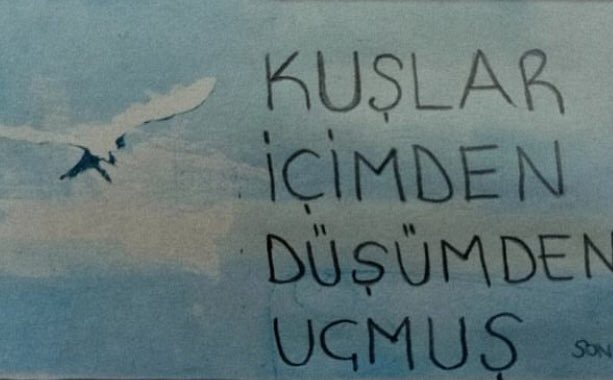 KUŞLAR
İÇİMDEN
DÜŞÜMDEN
UÇMUŞ
SON